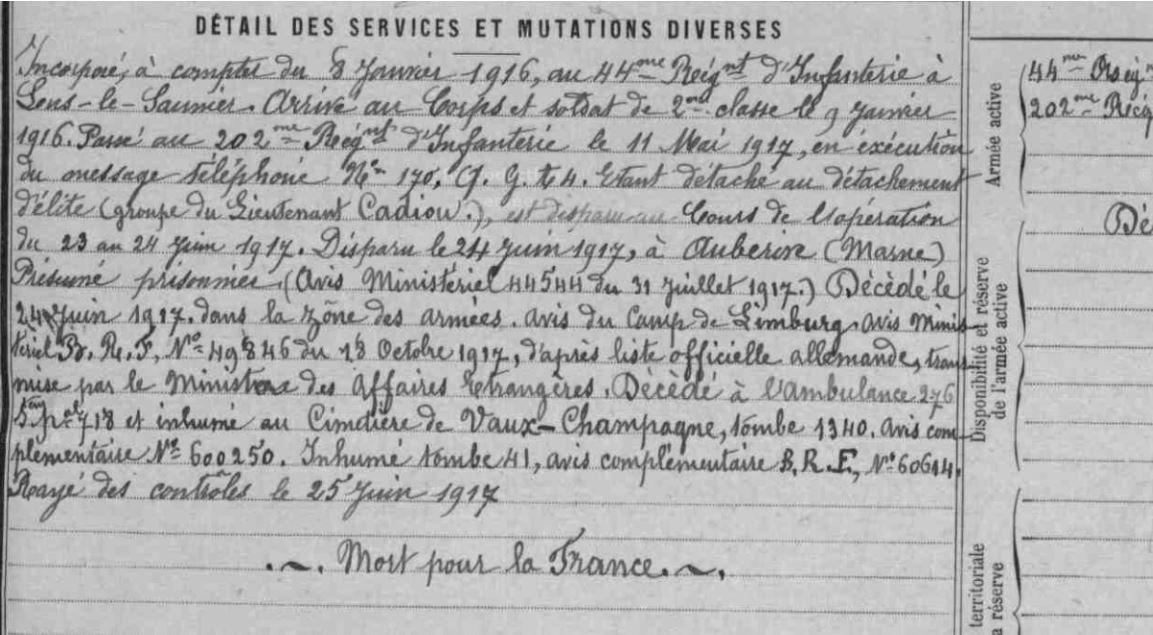 DÉTAIL DES SERVICES ET MUTATIONS DIVERSES
Incorporé, à compter du 8 Janvier 1916, au 44me Régnt d'Infanterie à
Lons-le-Saunier. Arrivé au Corps et soldat de 2me classe le 9 Janvier
1916. Passé au 202me Régnt d'Infanterie le 11 Mai 1917, en exécution
du message téléphoné No 170, Q. G. 4. Etant détaché au détachement
d'élite (groupe du Lieutenant Cadiou.), est disparu au Cours de l'opération
du 23 au 24 Juin 1917. Disparu le 24 Juin 1917, à Auberive (Marne)
Présumé prisonnier (Avis Ministériel 44544 du 31 Juillet 1917.) Décèdé le
24 Juin 1917. dans la zône des armées. avis du Camp de Limburg. avis Minis
tériel B. R. F, No 49846 du 18 Octobre 1917, d'après liste officielle allemande, trans
mise par le Ministre des Affaires Etrangères. Décèdé à l'ambulance 276
718 et inhumé au Cimetière de Vaux-Champagne, tombe 1340. avis com
plémentaire No 600250. Inhumé tombe 41, avis complémentaire B. R. F., No 60614.
Rayé des contrôles le 25 Juin 1917
Mort pour la France.
Armée active
44me Régnt
202me Rég
Disponibilité et réserve
de l'armée active
Dé
territoriale
a réserve